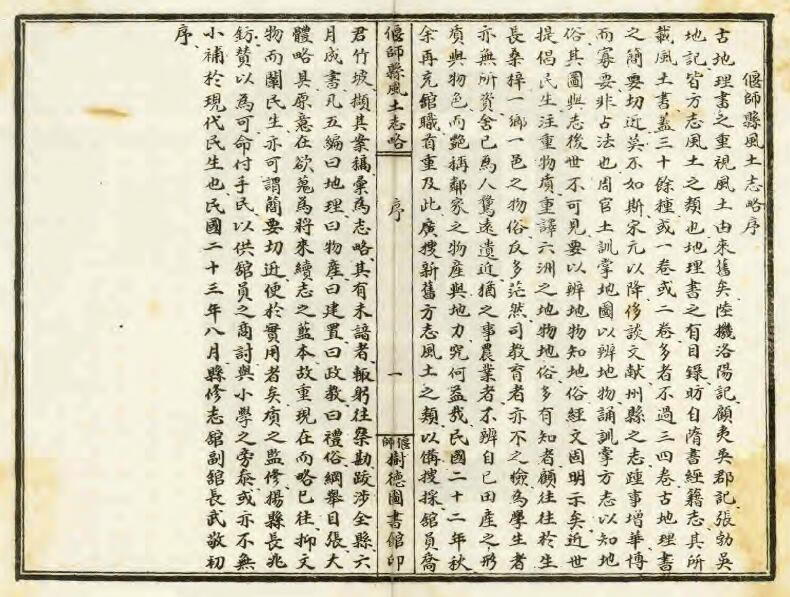 偃師縣風土志略序
古地理書之重視風土由來舊矣陸機洛陽記顧夷吳郡記張勃吳
地記皆方志風土之類也地理書之有目錄昉自隋書經籍志其所
載風土書蓋三十餘種或一卷或二卷多者不過三四卷古地理書
之簡要切近莫不如斯宋元以降侈談文献州縣之志踵事增華博
而寡要非古法也周官土訓掌地圖以辨地物誦訓掌方志以知地
俗其圖與志後世不可見要以辨地物知地俗經文固明示矣近世
提倡民生注重物質重譯六洲之地物地俗多有知者顧往往於生
長桑梓一鄉一邑之物俗反多茫然司教育者亦不之檢為學生者
亦無所資舍己為人驚遠遺近猶之事農業者不辨自己田產之形
質與物色而艷稱鄰家之物產與地力究何益哉民國二十二年秋
余再充館職首重及此廣搜新舊方志風土之類以備搜採館員喬
偃師縣風土志略
序
一
偃師樹德圖書館印
君竹坡擷其案稿彙為志略其有未諳者輙躬往察勘跋涉全縣六
月成書凡五編曰地理曰物產曰建置曰政教曰禮俗綱舉目張大
體略具原意在欲蒐為將來續志之藍本故重現在而略已往抑文
物而闡民生亦可謂簡要切近便於實用者矣質之監修揚縣長兆
鈁贊以為可命付手民以供館員之商討與小學之旁泰或亦不無
小補於現代民生也民國二十三年八月縣修志館副館長武敬初
序